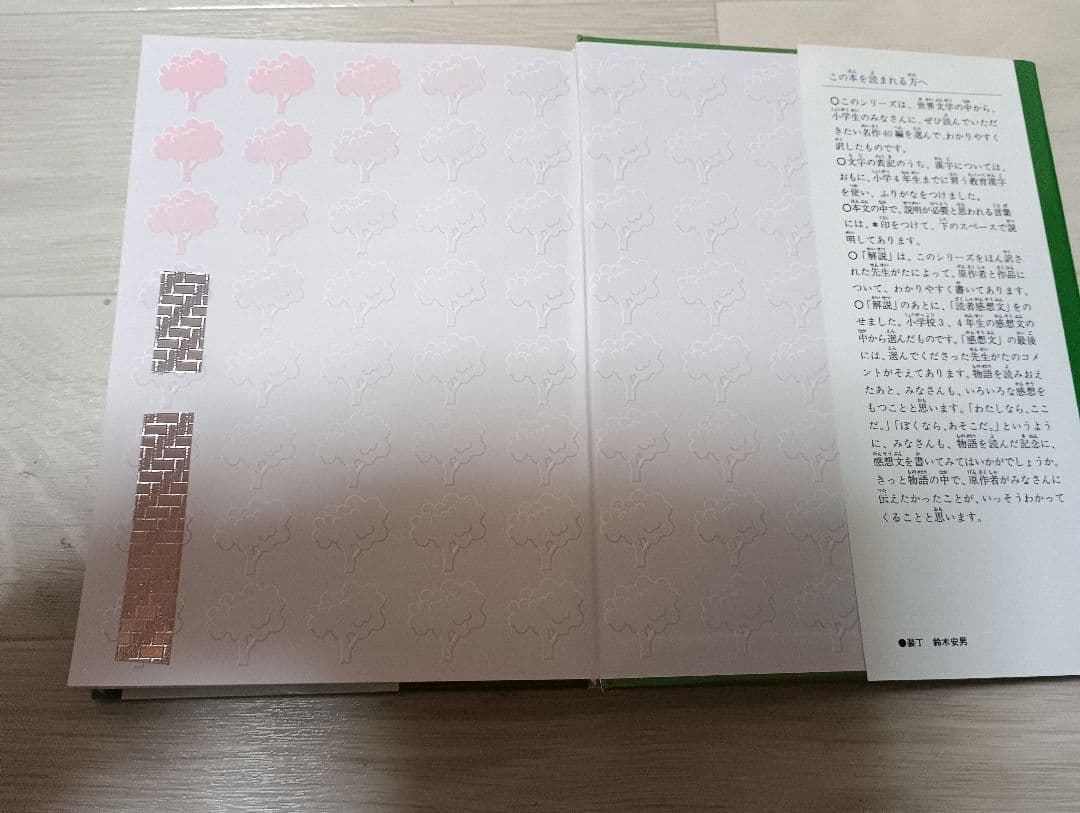 この本を読まれる方へ
○このシリーズは、世界文学の中から、
小学生のみなさんに、ぜひ読んでいただ
きたい名作40編を選んで、わかりやすく
訳したものです。
○文字の表記のうち、漢字については、
おもに、小学4年生までに習う教育漢字
を使い、ふりがなをつけました。
○本文の中で、説明が必要と思われる言葉
には、*印をつけて、下のスペースで説
明してあります。
○「解説」は、このシリーズをほん訳さ
れた先生がたによって、原作者と作品に
ついて、わかりやすく書いてあります。
○「解説」のあとに、「読者感想文」をの
せました。小学校3、4年生の感想文の
中から選んだものです。「感想文」の最後
には、選んでくださった先生がたのコメ
ントがそえてあります。物語を読みおえ
たあと、みなさんも、いろいろな感想を
もつことと思います。「わたしなら、ここ
だ。」「ぼくなら、あそこだ。」というよう
に、みなさんも、物語を読んだ記念に、
感想文を書いてみてはいかがでしょうか。
きっと物語の中で、原作者がみなさんに
伝えたかったことが、いっそうわかって
くることと思います。
●装丁 鈴木安男